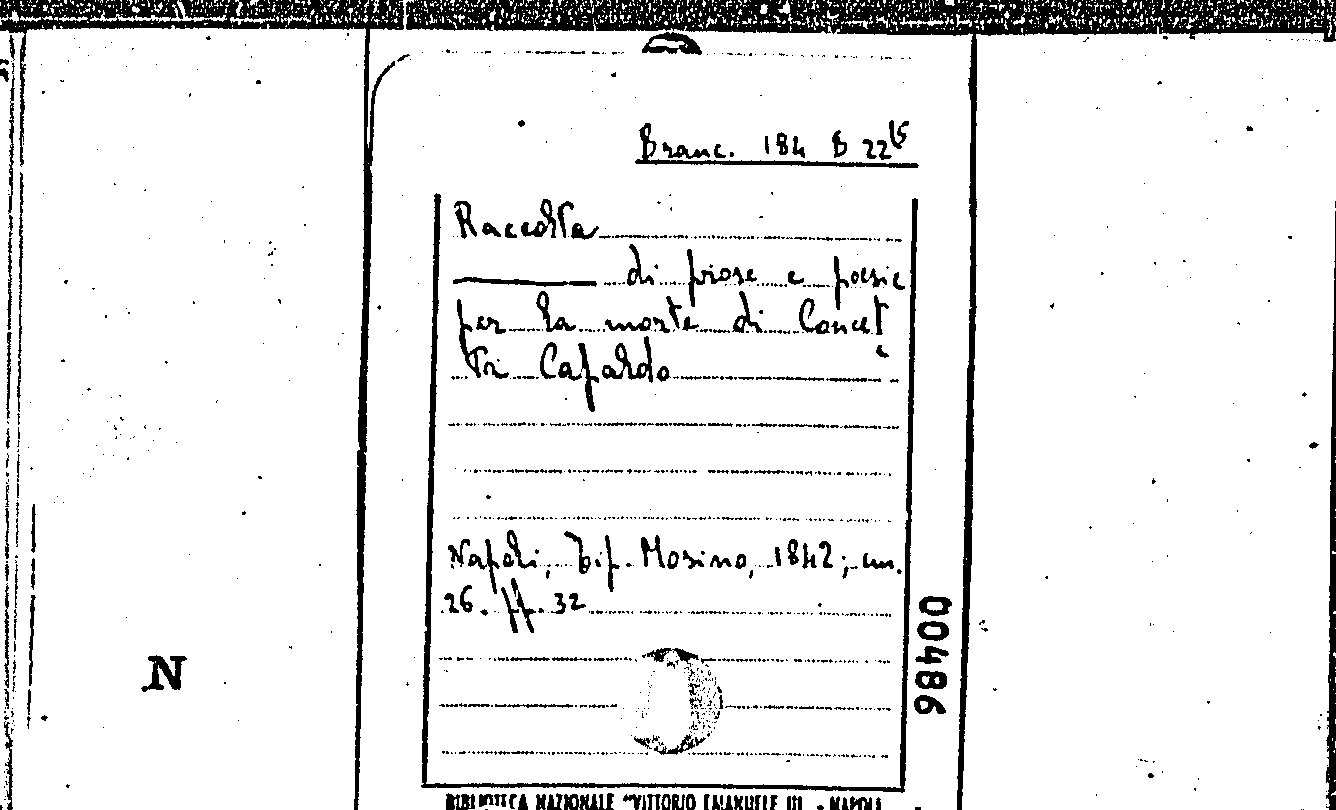 Branc. 184 B 22 15
Raccolta
di prose e poesie
per la morte di Concet
ta Capaldo
Napoli, Tip. Mosino, 1842; cm.
26. pp. 32
00486
N
BIBLIOTECA NAZIONALE "VITTORIO EMANUELE III - NAPOLI